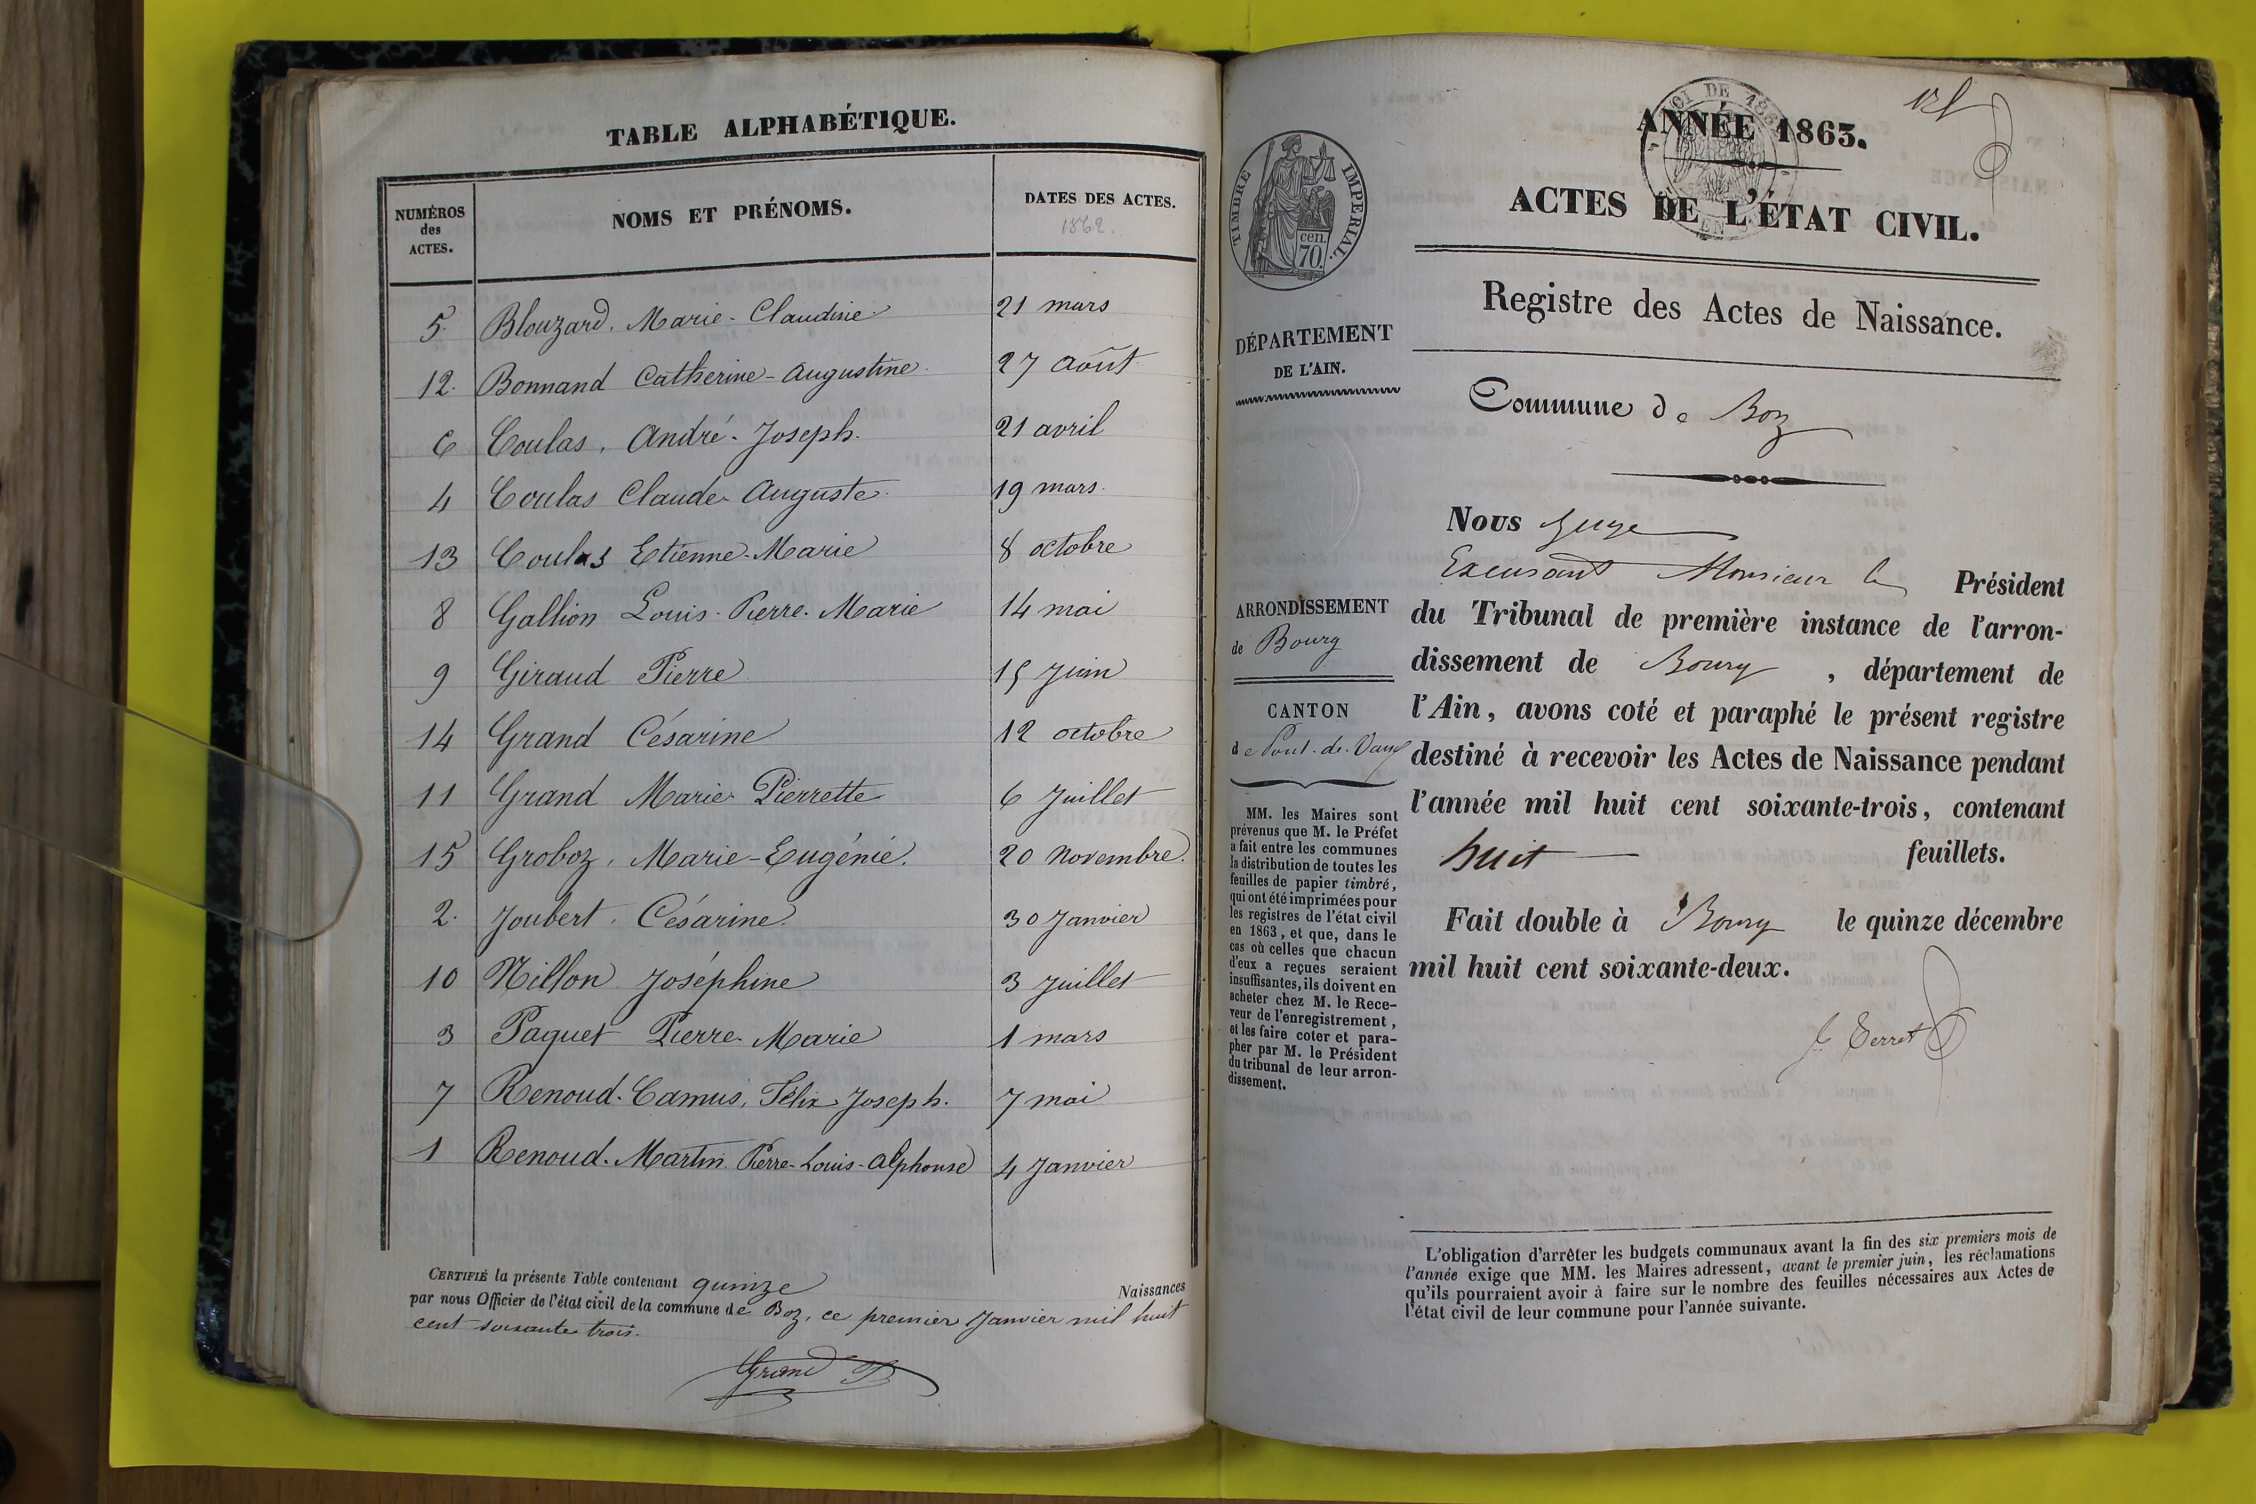 TABLE ALPHABÉTIQUE.
NUMÉROS des ACTES. NOMS ET PRÉNOMS. DATES DES ACTES.
1862.
5. Blouzard, Marie-Claudine 21 mars
12. Bonnand Catherine-Augustine 27 août
6 Coulas, André-Joseph. 21 avril
4 Coulas Claude-Auguste. 19 mars.
13 Coulas Etienne-Marie 8 octobre
8 Gallion Louis-Pierre-Marie 14 mai
9 Giraud Pierre 15 Juin
14 Grand Césarine 12 octobre
11 Grand Marie-Pierrette 6 Juillet
15 Groboz, Marie-Eugénie. 20 Novembre.
2. Joubert, Césarine. 30 Janvier
10 Millon Joséphine 3 Juillet
3 Paquet Pierre-Marie 1 mars
7 Renoud-Camus, Félix-Joseph. 7 mai
1 Renoud-Martin Pierre-Louis-Alphonse 4 Janvier
CERTIFIÉ la présente Table contenant quinze Naissances
par nous Officier de l'état civil de la commune de Boz, ce premier Janvier mil huit
cent soixante trois.
Grand
ANNÉE 1863.
ACTES DE L'ÉTAT CIVIL.
TIMBRE IMPERIAL.
70. cen.
Registre des Actes de Naissance.
DÉPARTEMENT
DE L'AIN.
Commune de Boz
Nous Juge
Excusant Monsieur le Président
du Tribunal de première instance de l'arron-
dissement de Bourg, département de
l'Ain, avons coté et paraphé le présent registre
destiné à recevoir les Actes de Naissance pendant
l'année mil huit cent soixante-trois, contenant
huit feuillets.
Fait double à Bourg le quinze décembre
mil huit cent soixante-deux.
ARRONDISSEMENT
de Bourg
CANTON
de Pont-de-Vaux
MM. les Maires sont
prévenus que M. le Préfet
a fait entre les communes
la distribution de toutes les
feuilles de papier timbré,
qui ont été imprimées pour
les registres de l'état civil
en 1863, et que, dans le
cas où celles que chacun
d'eux a reçues seraient
insuffisantes, ils doivent en
acheter chez M. le Rece-
veur de l'enregistrement,
et les faire coter et para-
pher par M. le Président
du tribunal de leur arron-
dissement.
L'obligation d'arrêter les budgets communaux avant la fin des six premiers mois de
l'année exige que MM. les Maires adressent, avant le premier juin, les réclamations
qu'ils pourraient avoir à faire sur le nombre des feuilles nécessaires aux Actes de
l'état civil de leur commune pour l'année suivante.